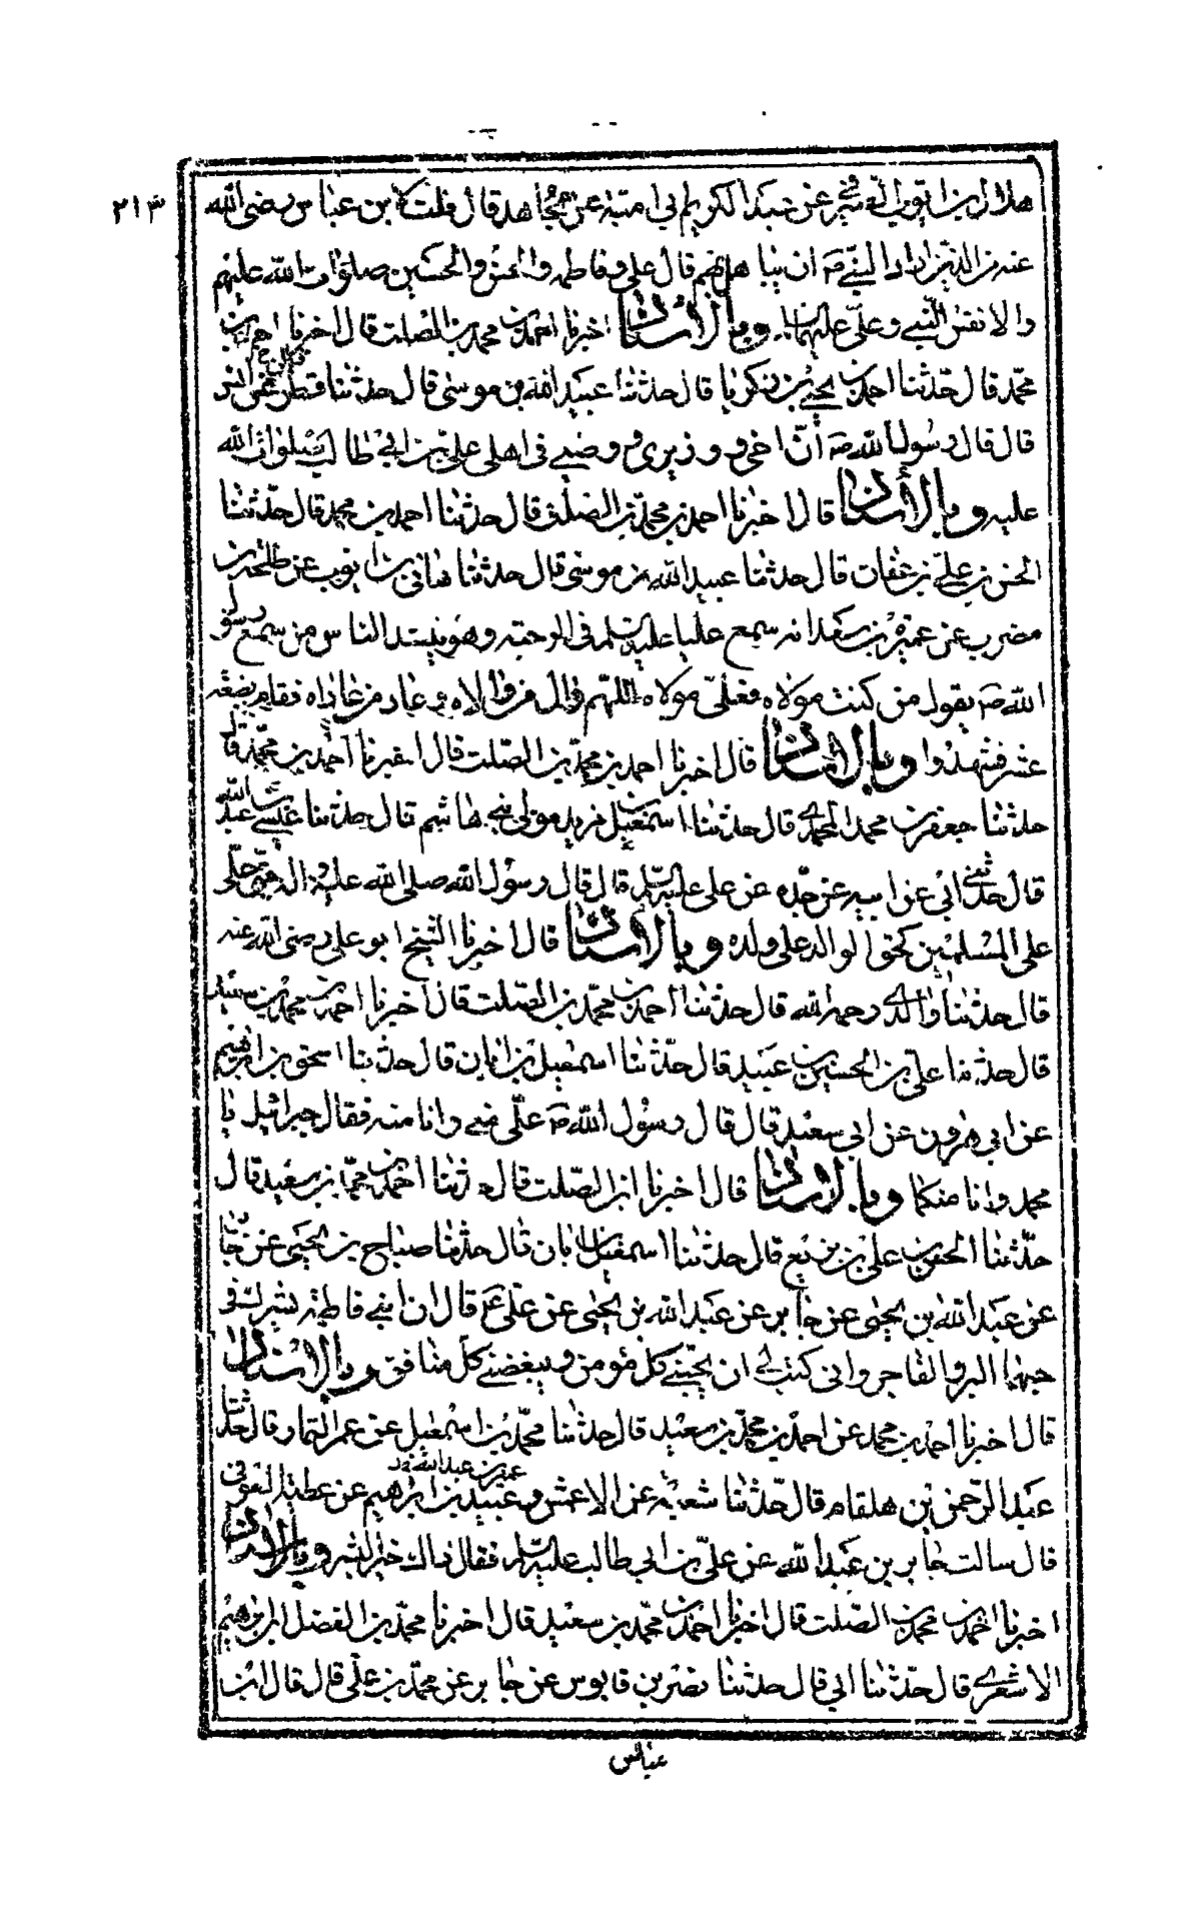 ٢١٣
هلال بن ايوب الصيرفي عن عبد الكريم بي امية عن مجاهد قال قلت لابن عباس رضى الله
عنه من الذين اراد النبي ص ان يباهل بهم قال علي وفاطمه والحسن والحسين صلوات الله عليهم
والانفس النبي وعلي عليهما وبالاسناد اخبرنا احمد بن محمد بن الصلت قال اخبرنا احمد بن
محمد قال حدثنا احمد بن يحيى بن زكريا قال حدثنا عبيد الله بن موسى قال حدثنا قطر عن انس
قال قال رسول الله ص ان اخي ووزيري ووصيي في اهلي علي بن ابي طالب صلوات الله
عليه وبالأسناد قال اخبرنا احمد بن محمد بن الصلت قال حدثنا احمد بن محمد قال حدثنا
الحسن بن علي بن عفان قال حدثنا عبيد الله بن موسى قال حدثنا هاني بن ايوب عن طلحة بن
مضرب عن عميرة بن سعد انه سمع عليا عليه السلم في الرحبه وهو ينشد الناس من سمع رسول
الله ص يقول من كنت مولاه فعلي مولاه اللهم وال من والاه وعاد من عاداه فقام بضعه
عشر فشهدوا وبالاسناد قال اخبرنا احمد بن محمد بن الصلت قال اخبرنا احمد بن محمد قال
حدثنا جعفر بن محمد المحمدي قال حدثنا اسمعيل بن مزيد مولى بني هاشم قال حدثنا عيسى بن عبد الله
قال حدثني ابي عن ابيه عن جده عن علي عليه السلم قال قال رسول الله صلى الله عليه واله حق علي
على المسلمين كحق الوالد على ولده وبالاسناد قال اخبرنا الشيخ ابو علي رضى الله عنه
قال حدثنا والدي رحمه الله قال حدثنا احمد بن محمد بن الصلت قال اخبرنا احمد بن محمد بن سعيد
قال حدثنا علي بن الحسين بن عبيد قال حدثنا اسمعيل بن ابان قال حدثنا اسحق بن ابرهيم
عن ابي هرون عن ابي سعيد قال قال رسول الله ص علي مني وانا منه فقال جبرائيل يا
محمد وانا منكما وبالاسناد قال اخبرنا ابن الصلت قال حدثنا احمد بن محمد بن سعيد قال
حدثنا الحسن بن علي بن بزيع قال حدثنا اسمعيل بن ابان قال حدثنا صباح بن يحيى عن جا
عن عبد الله بن يحيى عن جابر عن عبد الله بن يحيى عن علي ع قال ان ابني فاطمة يشرك في
حبهما البر والفاجر واني كتب لي ان يحبني كل مؤمن ويبغضني كل منافق وبالاسناد
قال اخبرنا احمد بن محمد عن احمد بن محمد بن سعيد قال حدثنا محمد بن اسمعيل عن عمر التمار قال حدثنا
عبد الرحمن بن هلقام قال حدثنا شعبة عن الاعمش وعبيد بن ابرهيم عن عطية العوفي
قال سالت جابر بن عبد الله عن علي بن ابي طالب عليه السلم فقال ذاك خير البشر وبالاسناد
اخبرنا احمد بن محمد بن الصلت قال اخبرنا احمد بن محمد بن سعيد قال اخبرنا محمد بن الفضل بن ابرهيم
الاشعري قال حدثنا ابي قال حدثنا نصر بن قابوس عن جابر عن محمد بن علي قال قال ابن
عباس